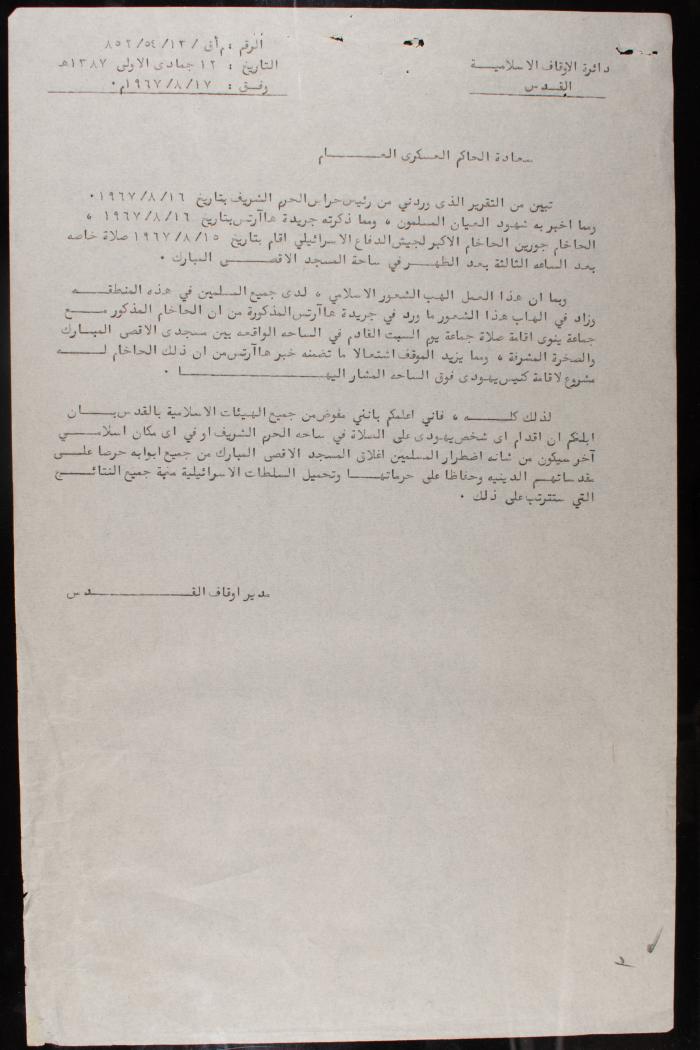 دائرة الاوقاف الاسلامية
القدس
الرقم : م أق / ١٣ / ٥٤ / ٨٥٢
التاريخ : ١٢ جمادى الاولى ١٣٨٧هـ
وفق : ١٧ / ٨ / ١٩٦٧م٠
سعادة الحاكم العسكرى العـــــــام
تبين من التقرير الذى وردني من رئيس حراس الحرم الشريف بتاريخ ١٦ / ٨ / ١٩٦٧ ٠
ومما اخبر به شهود العيان المسلمون ، ومما ذكرته جريدة هاآرتس بتاريخ ١٦ / ٨ / ١٩٦٧ ،
الحاخام جورين الحاخام الاكبر لجيش الدفاع الاسرائيلي اقام بتاريخ ١٥ / ٨ / ١٩٦٧ صلاة خاصه
بعد الساعه الثالثة بعد الظهـر في ساحة المسجد الاقصـــى المبارك ٠
وبما ان هذا العمل الهب الشعور الاسلامي ، لدى جميع المسلمين في هذه المنطقـــه
وزاد في الهاب هذا الشعور ما ورد في جريدة هاآرتس المذكورة من ان الحاخام المذكور مـــع
جماعة ينوى اقامة صلاة جماعة يوم السبت القادم في الساحه الواقعه بين مسجدى الاقصى المبارك
والصخرة المشرفة ، ومما يزيد الموقف اشتعالا ما تضمنه خبر هاآرتس من ان ذلك الحاخام لـــه
مشروع لاقامة كنيس يهودى فوق الساحه المشار اليهـــــــــا ٠
لذلك كلـــه ، فاني اعلمكم بانني مفوض من جميع الهيئات الاسلامية بالقدس بـــان
ابلغكم ان اقدام اى شخص يهودى على الصلاة في ساحه الحرم الشريف او في اى مكان اسلامـــي
آخر سيكون من شانه اضطرار المسلمين اغلاق المسجد الاقصى المبارك من جميع ابوابه حرصا علـــى
مقدساتهـم الدينيه وحفاظا على حرماتهـــا وتحميل السلطات الاسرائيلية مغبة جميع النتائـــج
التي ستترتب على ذلك ٠
مدير اوقاف القـــــــــدس